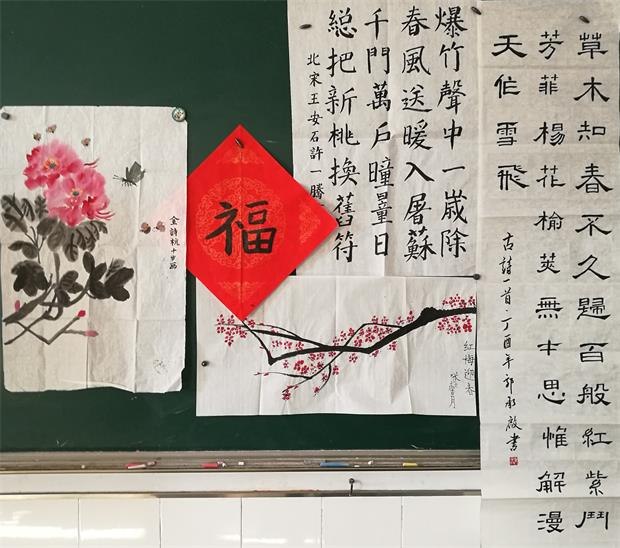 草木知春不久歸百般紅紫鬥
芳菲楊花榆莢無才思惟解漫
天作雪飛
古詩一首·丁酉年郭永啟書
爆竹聲中一歲除
春風送暖入屠蘇
千門萬戶曈曈日
總把新桃換舊符
北宋王安石許一騰
福
金詩杭十岁画
红梅迎春